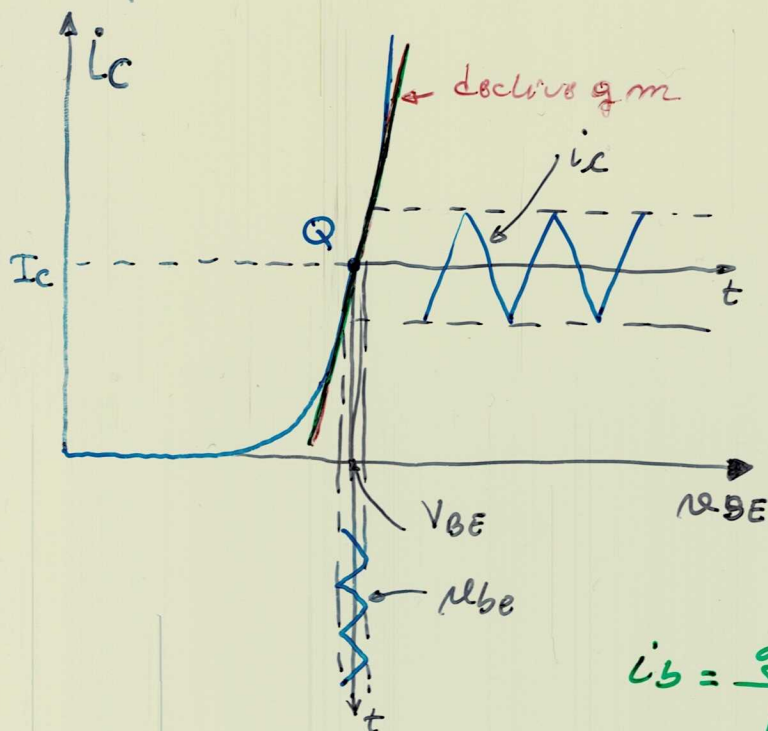 iC
declive gm
ic
Q
IC
t
vBE
VBE
vbe
ib =
t